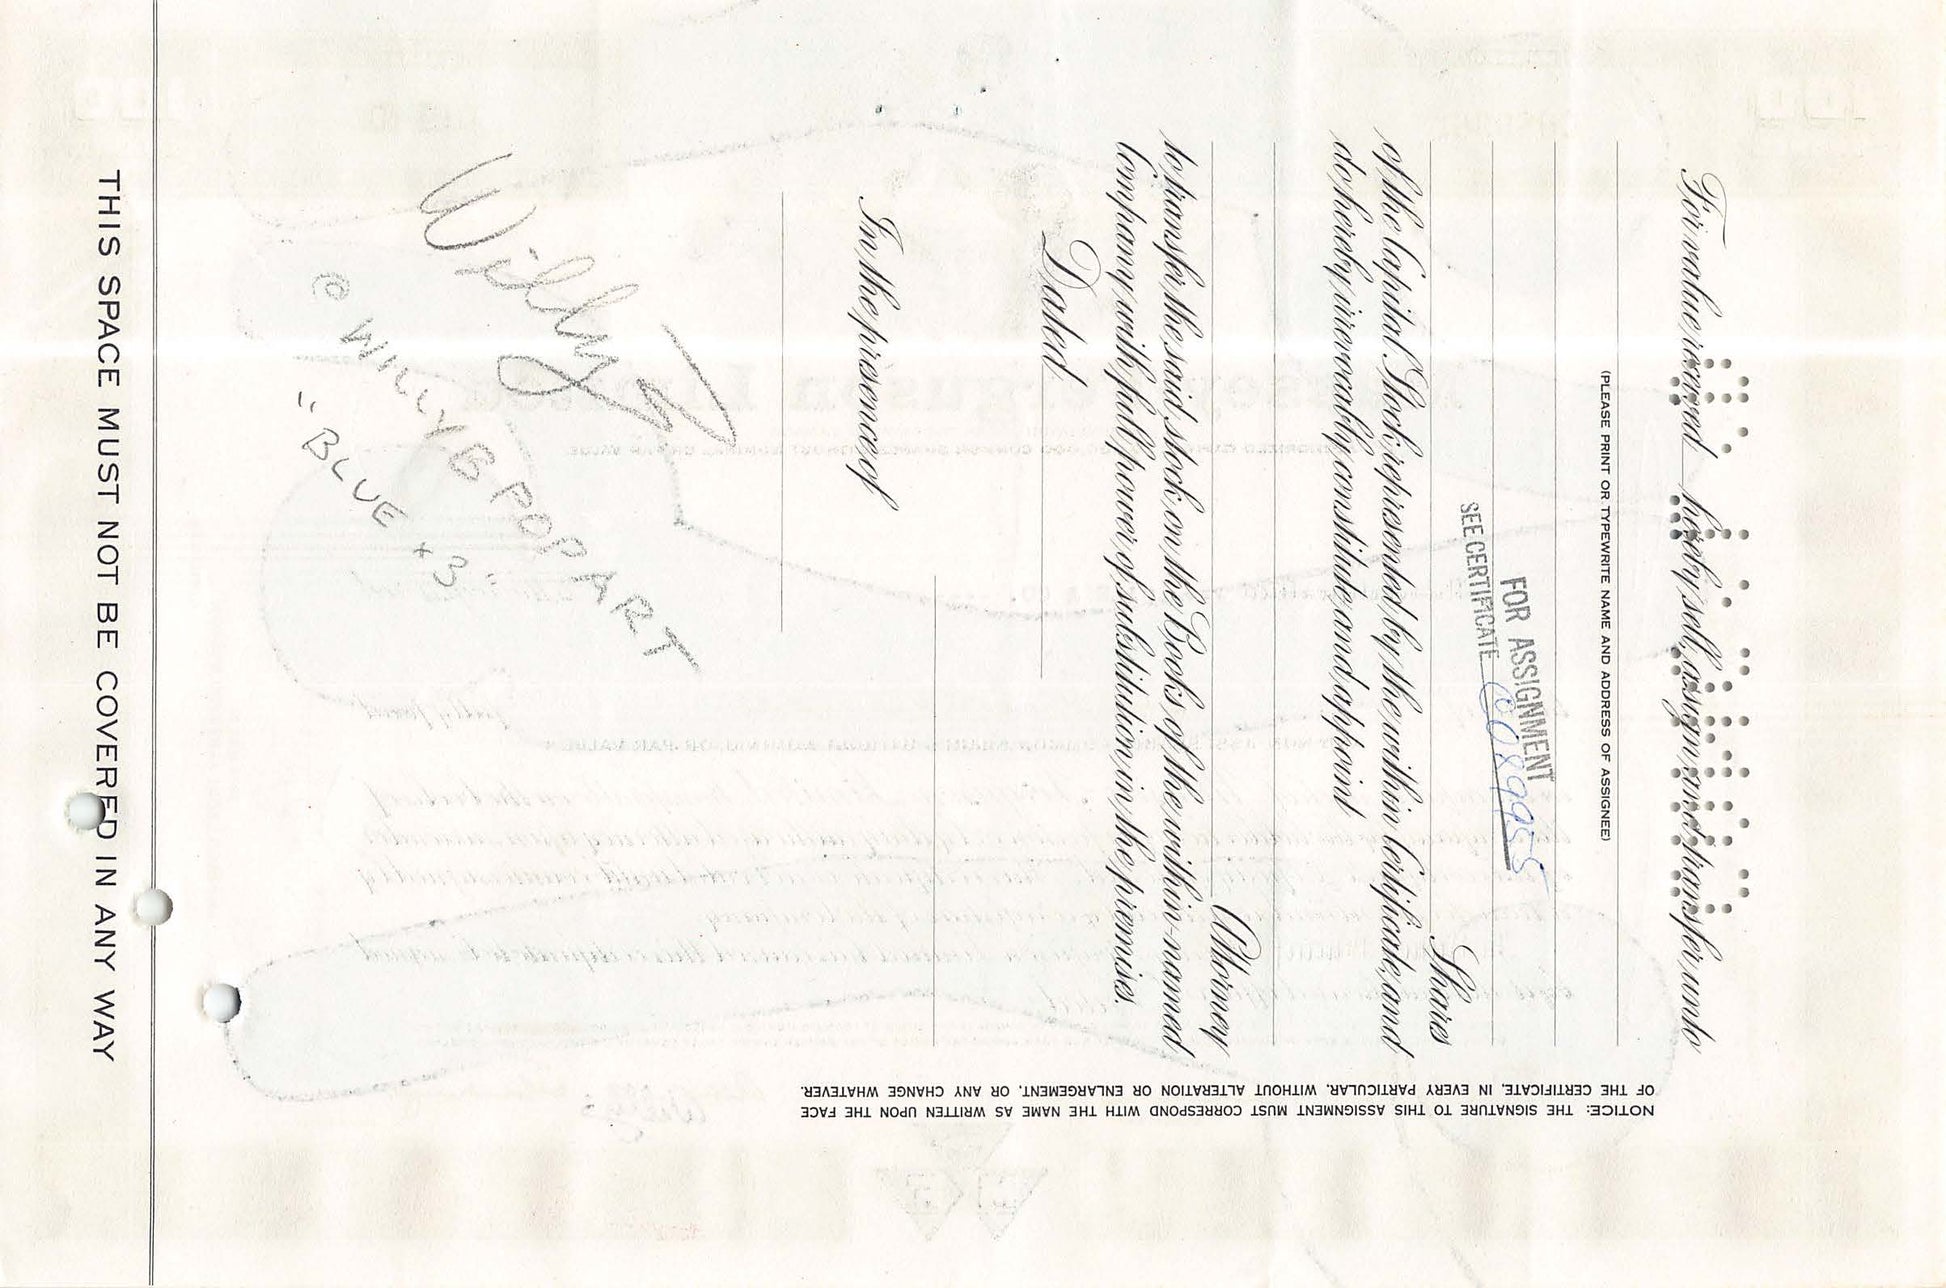 For value received hereby sell, assign and transfer unto
(PLEASE PRINT OR TYPEWRITE NAME AND ADDRESS OF ASSIGNEE)
FOR ASSIGNMENT
SEE CERTIFICATE
Shares
of the Capital Stock represented by the within Certificate, and
do hereby irrevocably constitute and appoint
Attorney
to transfer the said stock on the Books of the within-named
Company with full power of substitution in the premises.
Dated
In the presence of
NOTICE: THE SIGNATURE TO THIS ASSIGNMENT MUST CORRESPOND WITH THE NAME AS WRITTEN UPON THE FACE
OF THE CERTIFICATE, IN EVERY PARTICULAR, WITHOUT ALTERATION OR ENLARGEMENT, OR ANY CHANGE WHATEVER.
Willy
@ WILLYBPOPART
"BLUE + 3"
THIS SPACE MUST NOT BE COVERED IN ANY WAY